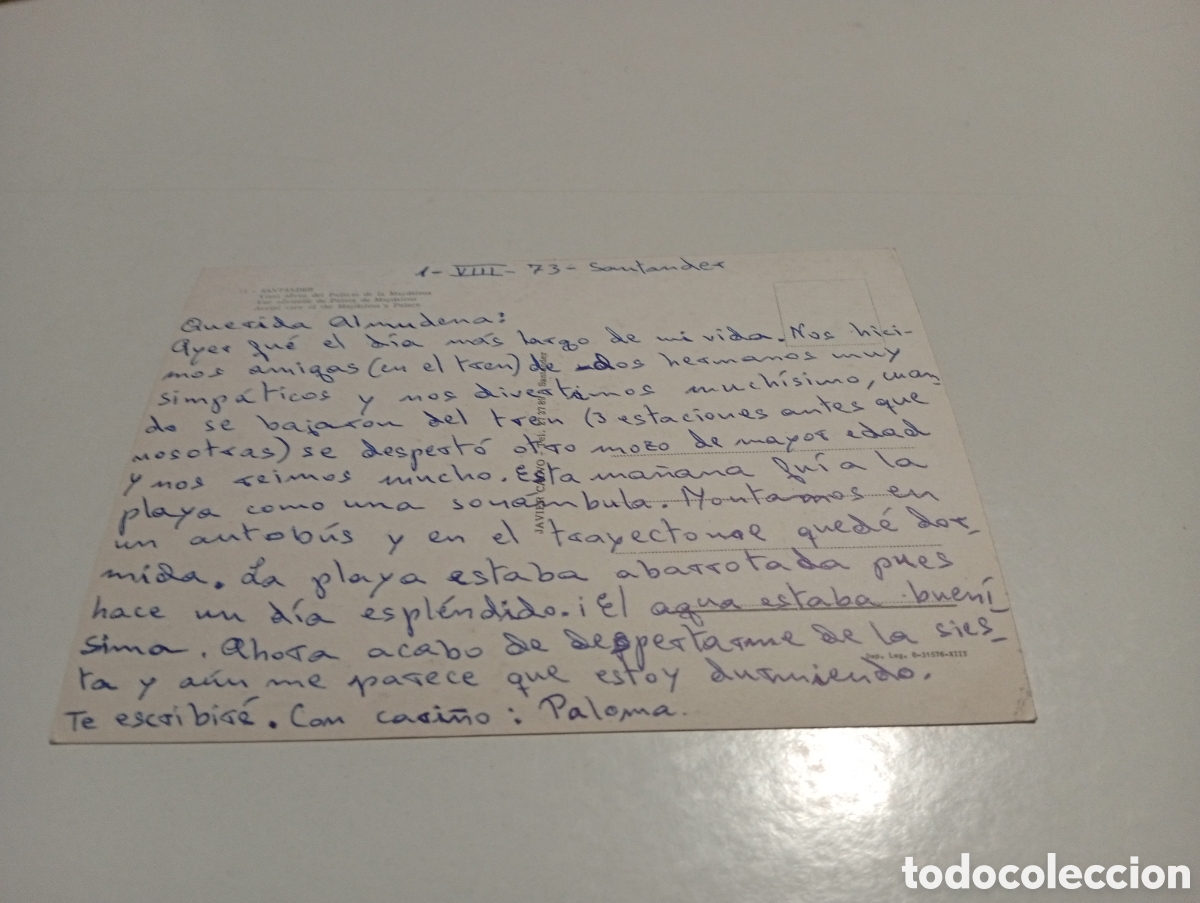 1-VIII-73-Santander
SANTANDER
Vista aérea del Palacio de la Magdalena
Querida Almudena:
Ayer fué el día más largo de mi vida. Nos hici-
mos amigas (en el tren) de dos hermanos muy
simpáticos y nos divertimos muchísimo, cuan-
do se bajaron del tren (3 estaciones antes que
nosotras) se despertó otro mozo de mayor edad
y nos reimos mucho. Esta mañana fuí a la
playa como una sonámbula. Montamos en
un autobús y en el trayecto me quedé dor-
mida. La playa estaba abarrotada pues
hace un día espléndido. ¡El agua estaba buení
sima. Ahora acabo de despertarme de la sies-
ta y aún me parece que estoy durmiendo.
Te escribiré. Con cariño: Paloma.
JAVIER CALVO - Tel.
Santander
Dep. Leg.
todocoleccion